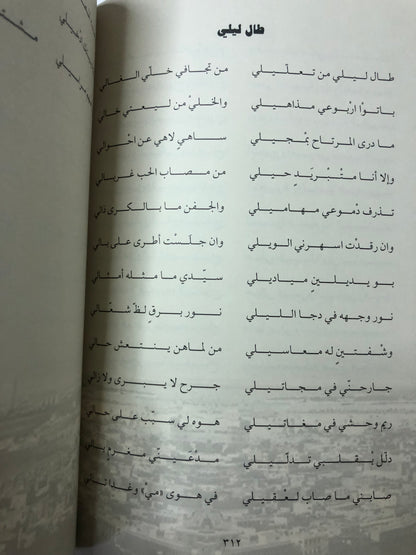 طال ليلي
طال ليلي من تعلّيلي من تجافي خلّي الغالي
باتوا اربوعي مذاهيلي والخليْ من ليعتي خالي
ما درى المرتاح بْمجيلي ساهيٍ لاهي عن احْوالي
وإلا أنا متْبريَدٍ حيلي من مصاب الحب غربالي
تذرف دْموعي مهاميلي والجفن ما بالكرى ذالي
وان رقدْت اسهرني الويلي وان جلست أطرى على بالي
بو يديلينٍ مياديلي سيّدي ما مثله أمثالي
نور وجهه في دجا الليلي نور برقٍ لظّ شعّالي
وشْفتينٍ له معاسيلي من لماهن ينتعش حالي
جارحتّي في مجاتيلي جرح لا يبرى ولا زالي
ريم وحشي في مغاتيلي هوه لي سبّب على حالي
دلّل بْقلبي تدلّيلي مدْعيَتّي مغرمٍ بالي
صابني ما صاب لعْقيلي في هوى «ميْ» وغدا تالي
٣١٢